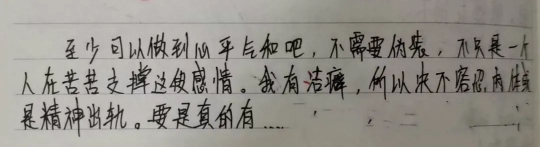 至少可以做到心平气和吧，不需要伪装，不只是一个
人在苦苦支撑这段感情。我有洁癖，所以决不容忍肉体或
是精神出轨。要是真的有……